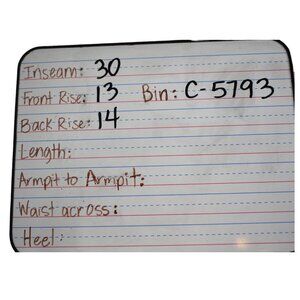 Inseam: 30
Front Rise: 13 Bin: C-5793
Back Rise: 14
Length:
Armpit to Armpit:
Waist across:
Heel: